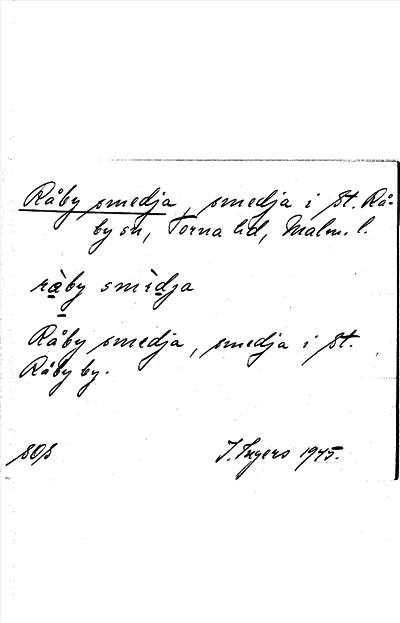 Råby smedja, smedja i St. Rå-
by sn, Torna hd, Malm. l.
ràby smìdja
Råby smedja, smedja i St.
Råby by.
SOS
I. Ingers 1945.